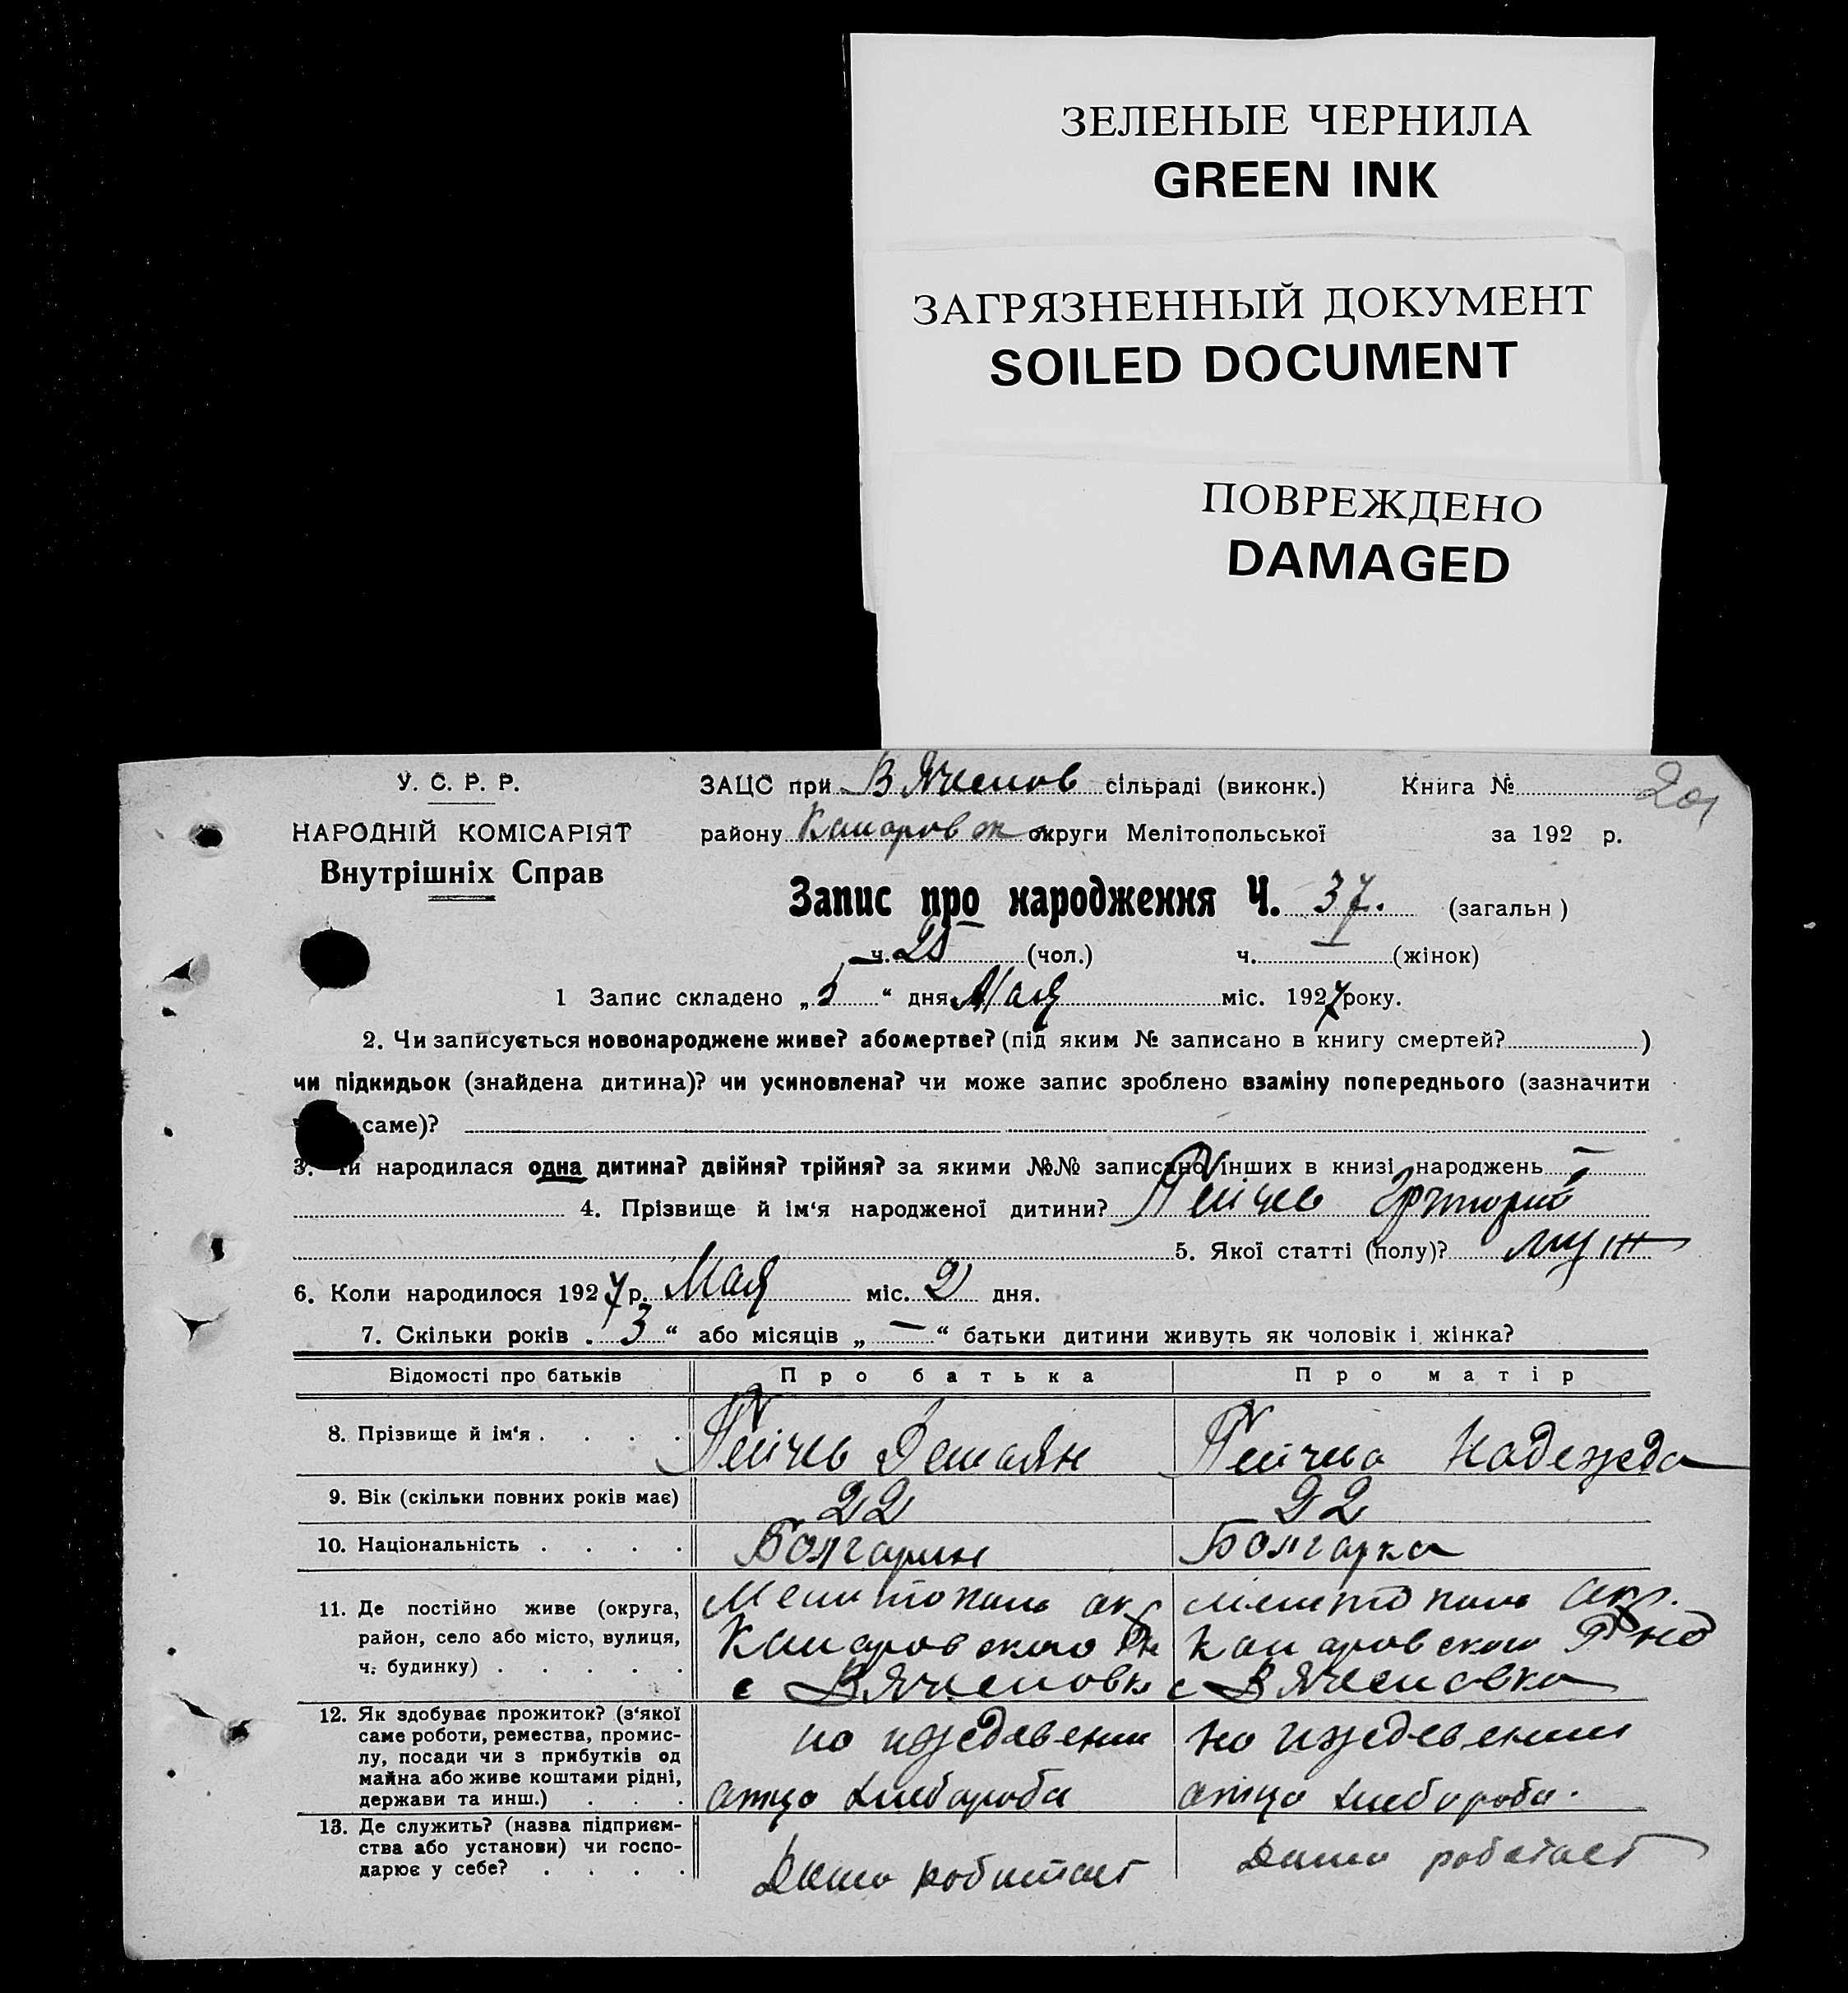 ЗЕЛЕНЫЕ ЧЕРНИЛА
GREEN INK
ЗАГРЯЗНЕННЫЙ ДОКУМЕНТ
SOILED DOCUMENT
ПОВРЕЖДЕНО
DAMAGED
У. С. Р. Р. ЗАЦС при сільраді (виконк.) Книга №
НАРОДНІЙ КОМІСАРІЯТ району округи Мелітопольської за 192 р.
Внутрішніх Справ
Запис про народження Ч. 37. (загальн)
ч. 25 (чол.) ч. — (жінок)
1 Запис складено „5“ дня Мая міс. 1927 року.
2. Чи записується новонароджене живе? або мертве? (під яким № записано в книгу смертей? )
чи підкидьок (знайдена дитина)? чи усиновлена? чи може запис зроблено взаміну попереднього (зазначити
саме)?
3. Чи народилася одна дитина? двійня? трійня? за якими №№ записано інших в книзі народжень —
4. Прізвище й ім‘я народженої дитини? Пейчев Григорий
5. Якої статті (полу)? муж
6. Коли народилося 1927 р. Мая міс. 2 дня.
7. Скільки років „3“ або місяців „—“ батьки дитини живуть як чоловік і жінка?
Відомості про батьків Про батька Про матір
8. Прізвище й ім‘я . . . . Пейчев Демьян Пейчева Надежда
9. Вік (скільки повних років має) 22 22
10. Національність . . . . Болгарин Болгарка
11. Де постійно живе (округа, Мелитополь окр Мелитополь окр.
район, село або місто, вулиця,
ч. будинку) . . . . . с Вячесловка
12. Як здобуває прожиток? (з‘якої на иждевении на иждевении
саме роботи, ремества, промис-
лу, посади чи з прибутків од
майна або живе коштами рідні, отца хлебороба отца хлебороба.
держави та инш.) . . .
13. Де служить? (назва підприєм-
ства або установи) чи госпо-
дарює у себе? . . . . Дома работает Дома работает